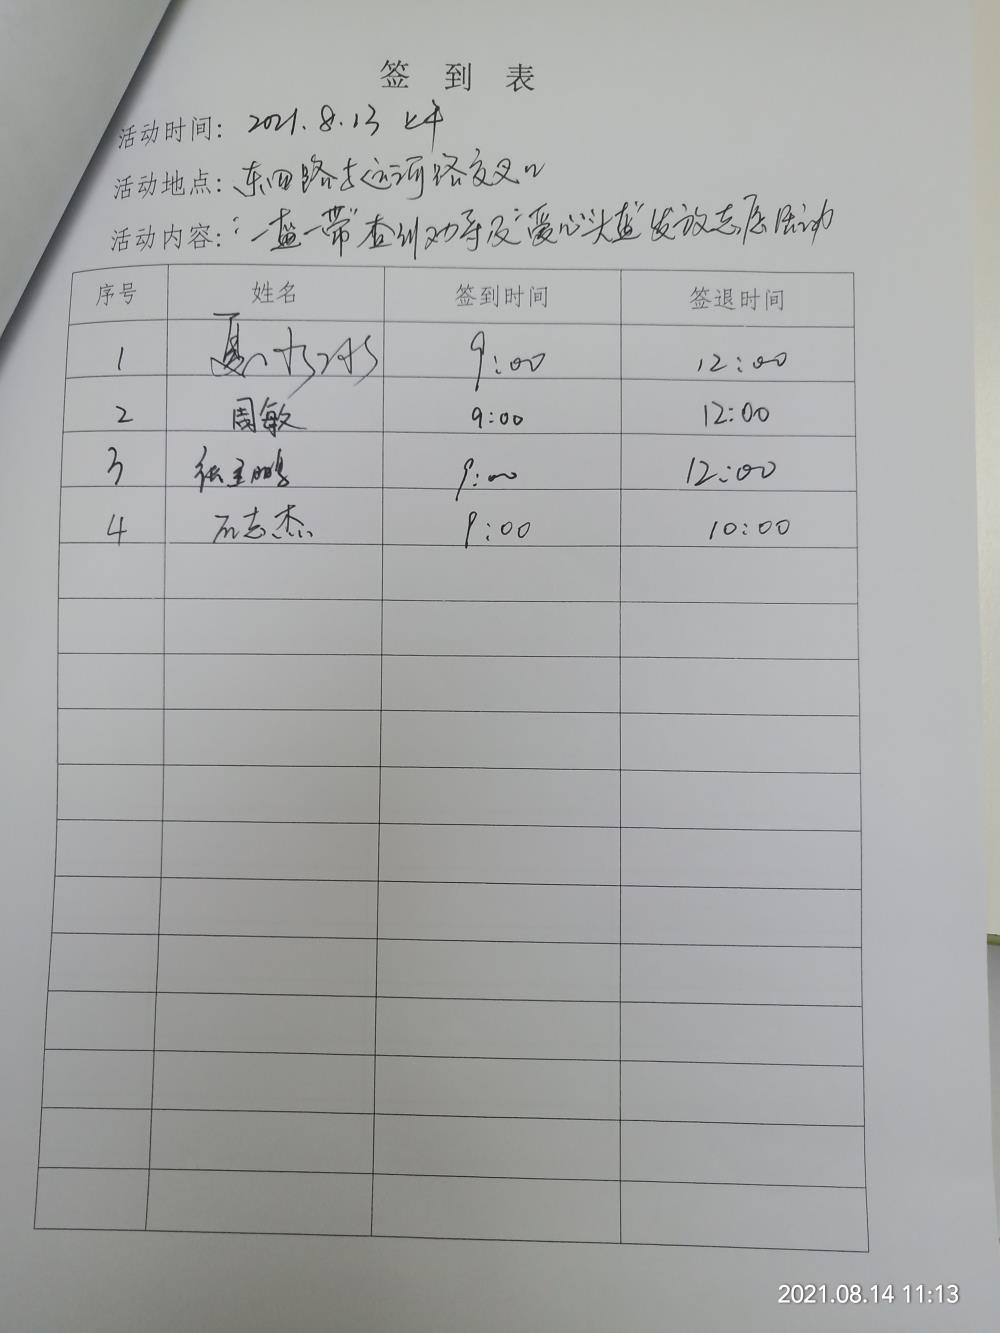 签到表
活动时间：2021.8.13 上午
活动地点：东四路与运河路交叉口
活动内容："一盔一带"查纠劝导及"爱心头盔"发放志愿活动
序号 姓名 签到时间 签退时间
1 夏 9:00 12:00
2 周敏 9:00 12:00
3 鹏 9:00 12:00
4 石志杰 9:00 10:00
2021.08.14 11:13